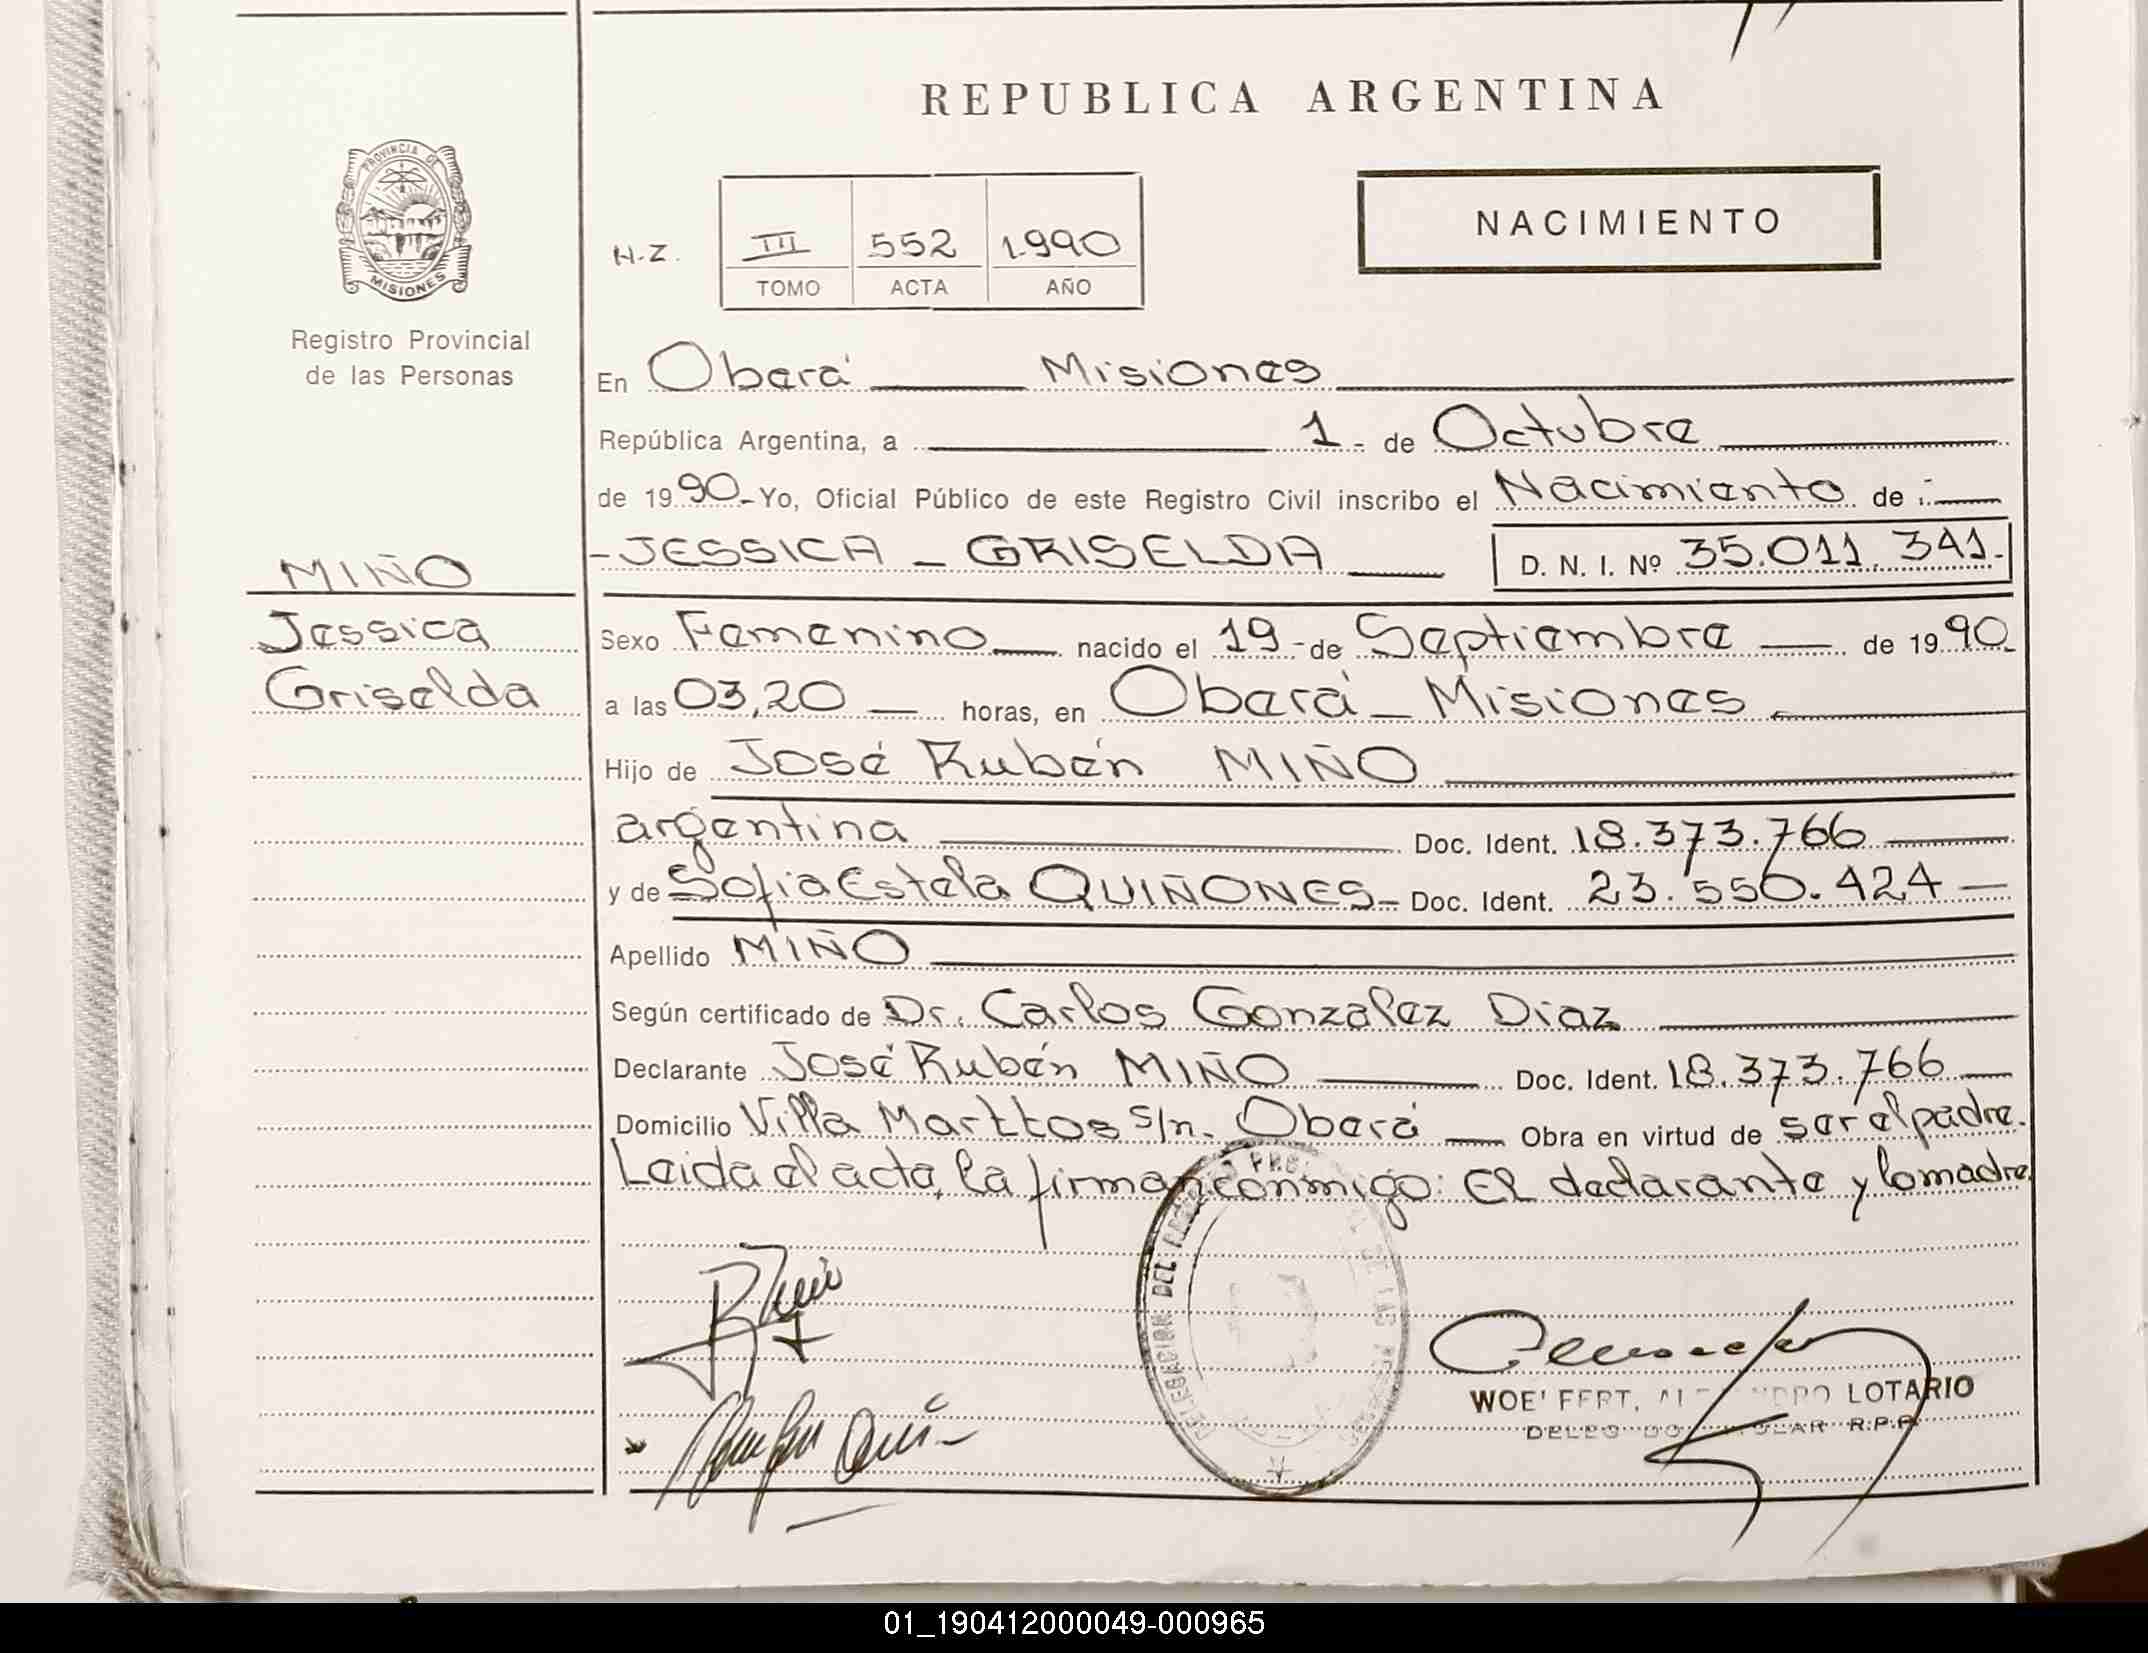 REPUBLICA ARGENTINA
PROVINCIA DE
MISIONES
Registro Provincial
de las Personas
H.Z. III 552 1990
TOMO ACTA AÑO
NACIMIENTO
En Oberá Misiones
República Argentina, a 1 - de Octubre
de 1990 - Yo, Oficial Público de este Registro Civil inscribo el Nacimiento de :
- JESSICA - GRISELDA D. N. I. Nº 35.011.341.
MIÑO
Jessica
Griselda
Sexo Femenino nacido el 19 - de Septiembre de 1990
a las 03,20 horas, en Oberá - Misiones
Hijo de José Rubén MIÑO
argentina Doc. Ident. 18.373.766
y de Sofia Estela QUIÑONES - Doc. Ident. 23.550.424
Apellido MIÑO
Según certificado de Dr. Carlos Gonzalez Diaz
Declarante José Rubén MIÑO Doc. Ident. 18.373.766
Domicilio Villa Marttos s/n. Oberá Obra en virtud de ser el padre.
Leida el acta, la firman conmigo: El declarante y la madre
DELEGACION DEL
LOTARIO
R.P.P.
01_190412000049-000965